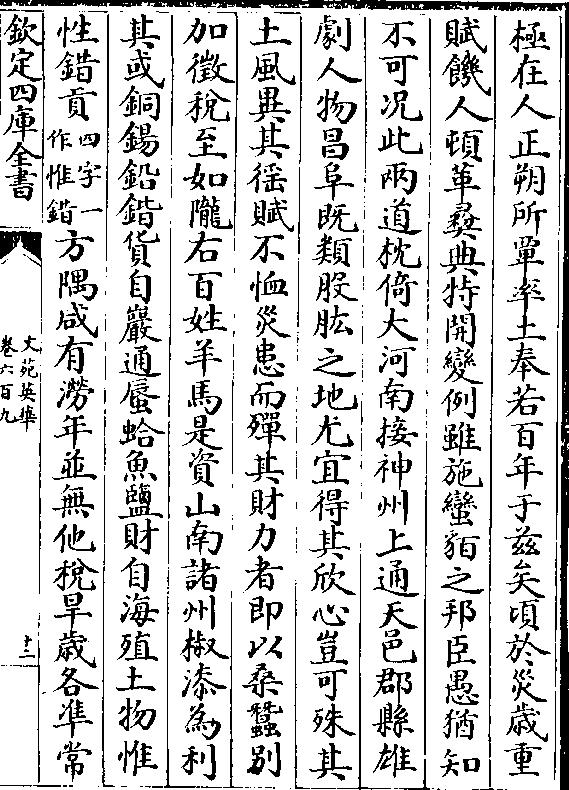 極在人正朔所覃率土奉若百年于茲矣頃於災歲重
賦饑人頓革彛典特開變例雖施蠻貊之邦臣愚猶知
不可况此兩道枕倚大河南接神州上通天邑郡縣雄
劇人物昌阜既類股肱之地尤宜得其欣心豈可殊其
土風異其徭賦不恤災患而殫其財力者即以桑蠶别
加徵稅至如隴右百姓羊馬是資山南諸州椒漆為利
其或銅錫鉛鍇貨自巖通蜃蛤魚鹽財自海殖土物惟
性錯貢四字一作惟錯方隅咸有澇年並無他稅旱歲各準常
欽定四庫全書
文苑英華
卷六百九
十二